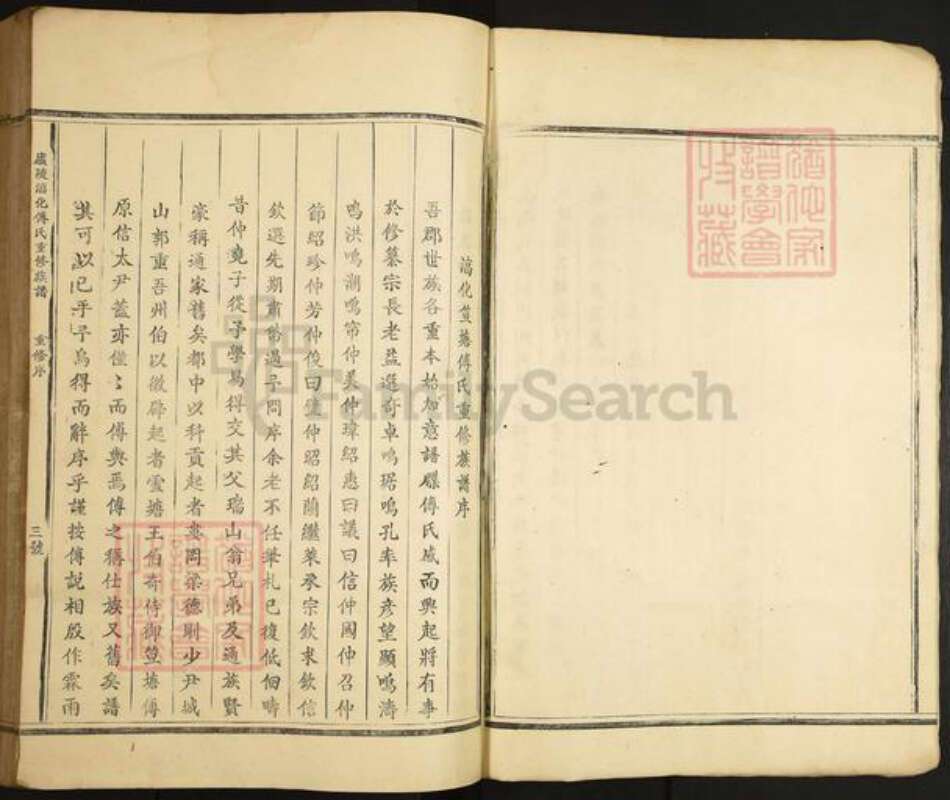 滀化笪塘傅氏重修族譜序
吾郡世族各重本始加意譜牒傅氏咸而興起將有事
於修纂宗長老益選奇卓鳴琚鳴孔率族彥望顯鳴濤
鳴洪鳴瀾鳴帘仲美仲瑋紹惠曰議曰信仲國仲召仲
節紹珍仲芳仲俊曰璧仲昭紹蘭繼萊承宗欽求欽信
欽選先期肅幣過予問序余老不任筆札已復低佪疇
昔仲堯子從予學易得交其父瑞山翁兄弟及通族賢
豪稱通家舊矣郡中以科貢起者婁岡梁德剛少尹城
山郭重吾州伯以徵辟起者雲塘王伯奇侍御笪塘傅
原信太尹蓋亦僅〻而傅與焉傅之稱仕族又舊矣譜
其可以已乎予烏得而辭序乎謹按傅說相殷作霖雨
廬陵滀化傅氏重修族譜
重修序
三號
FamilySearch